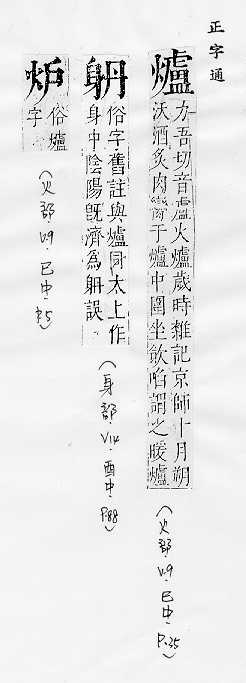 正字通
爐
力吾切音盧火爐歲時雜記京師十月朔
沃酒炙肉臠于爐中圍坐飲啗謂之暖爐
(火部.V9.巳中.P.35)
俗字舊註與爐同太上作
身中陰陽旣濟為躬誤
(身部.V14.酉中.P.88)
炉
俗爐
字
(火部.V9.巳中.P.5)